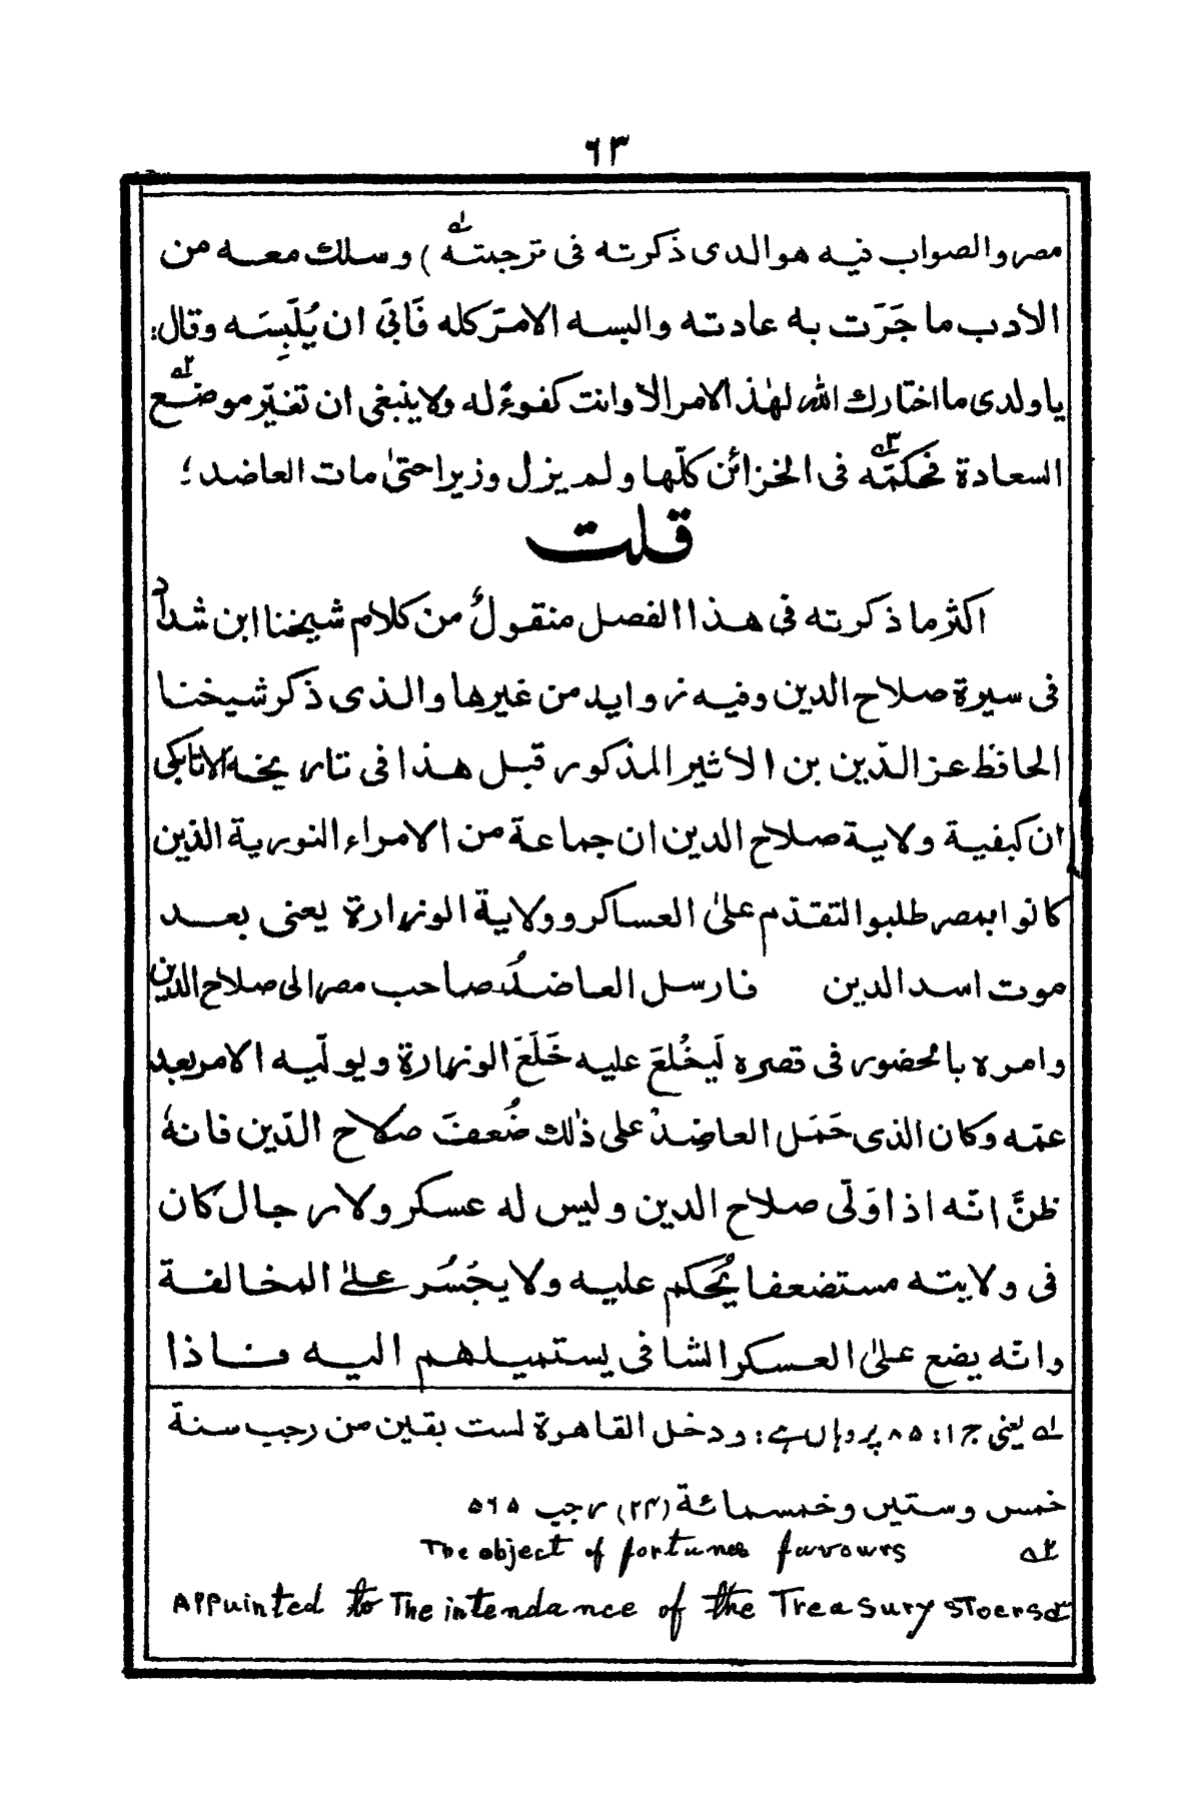 ٦٣
مصر والصواب فيه هو الدى ذكرته فى ترجبته ١ه) وسلك معه من
الادب ما جَرَت به عادته والبسه الامرَ كله فَابَىٰ ان يُلَبِسَه وقال:
ياولدى ما اختارك الله لهٰذ الامر الا وانت كفوءٌ له ولاينبغى ان تغيّر موضع ٢ه
السعادة فحكمّه ٣ه فى الخزائن كلّها ولم يزل وزيرا حتىٰ مات العاضد؛
قلت
اكثر ما ذكرته فى هذا الفصل منقولٌ من كلام شيخنا ابن شداد
فى سيرة صلاح الدين وفيه زوايد من غيرها والذى ذكر شيخنا
الحافظ عز الدّين بن الاثير المذكور قبل هذا فى تاريخه الاتابكى
ان كبفية ولاية صلاح الدين ان جماعة من الامراء النورية الذين
كانوا بمصر طلبوا التقدّم علىٰ العساكر وولاية الوزارة يعنى بعد
موت اسد الدين فارسل العاضدُ صاحب مصر الى صلاح الدين
وامره بالحضور فى قصره لَيخُلعَ عليه خَلَعَ الوزارة ويولّيه الامر بعد
عمّه وكان الذى حَمَل العاضدْ على ذٰلك ضُعفَ صلاح الدّين فانهٗ
ظنَّ انّه اذا وَلّى صلاح الدين وليس له عسكر ولا رجال كان
فى ولايته مستضعفا يُحكم عليه ولا يجَسُر علىٰ المخالفة
وانّه يضع علىٰ العسكر الشافى يستميلهم اليه فاذا
١ه يعنى ج ١: ٨٥ پر وہاں ہے: ودخل القاهرة لست بقين من رجب سنة
خمس وستين وخمسمائة (٢٤) رجب ٥٦٥
٢ه The object of fortunes favours
Appuinted to The intendance of the Treasury SToers ٣ه